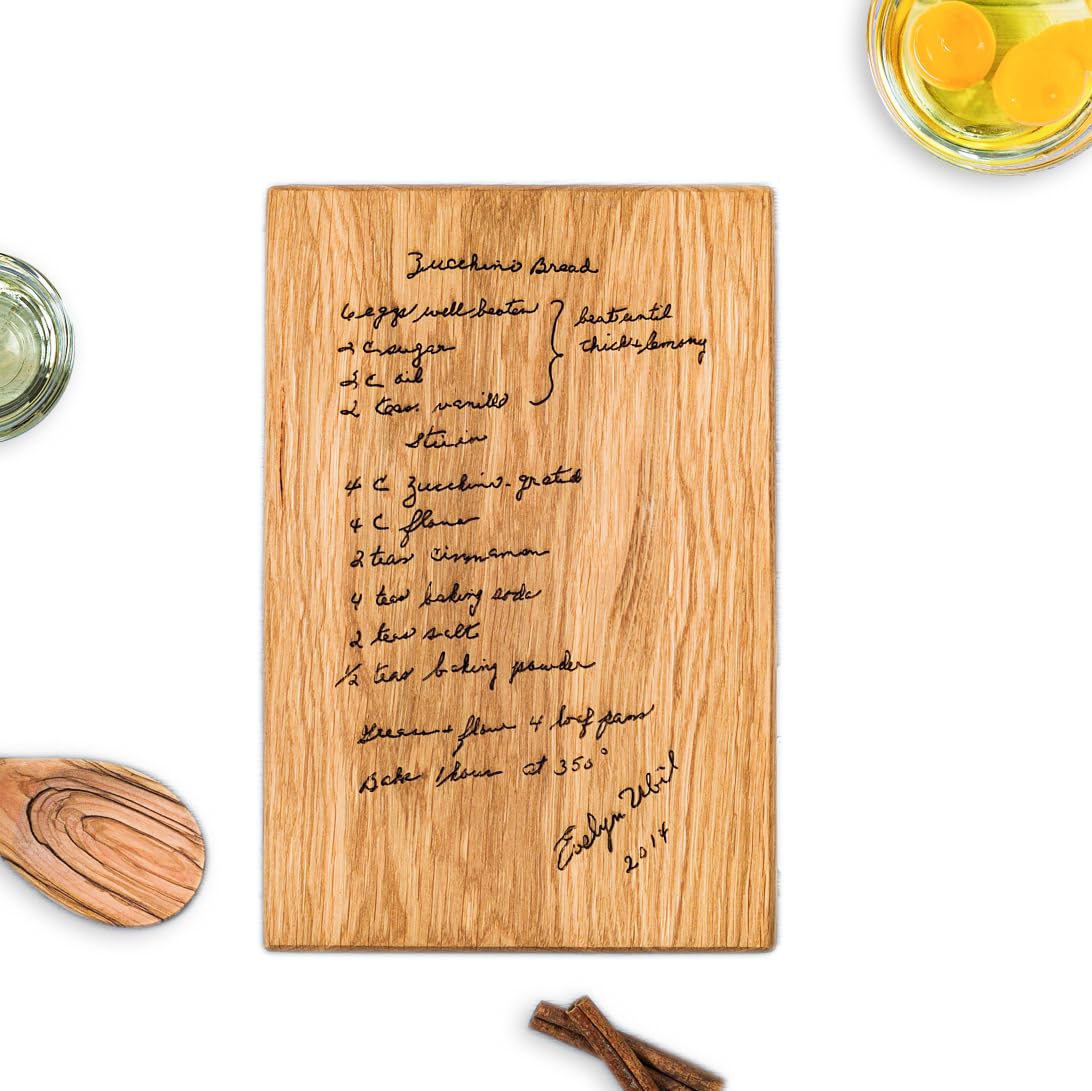 Zucchini Bread
6 eggs well beaten
2 C sugar
2 C oil
2 teas. vanilla
beat until
thick + lemony
Stir in
4 C Zucchini - grated
4 C flour
2 teas cinnamon
4 teas baking soda
2 teas salt
1/2 teas baking powder
Grease + flour 4 loaf pans
Bake 1 hour at 350°
Evelyn
2014